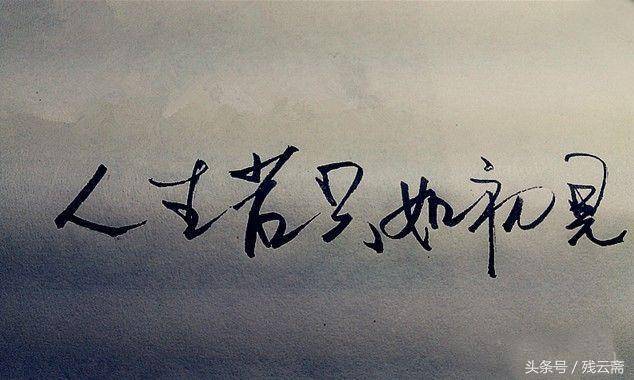 人生若只如初見
头条号／残云斋